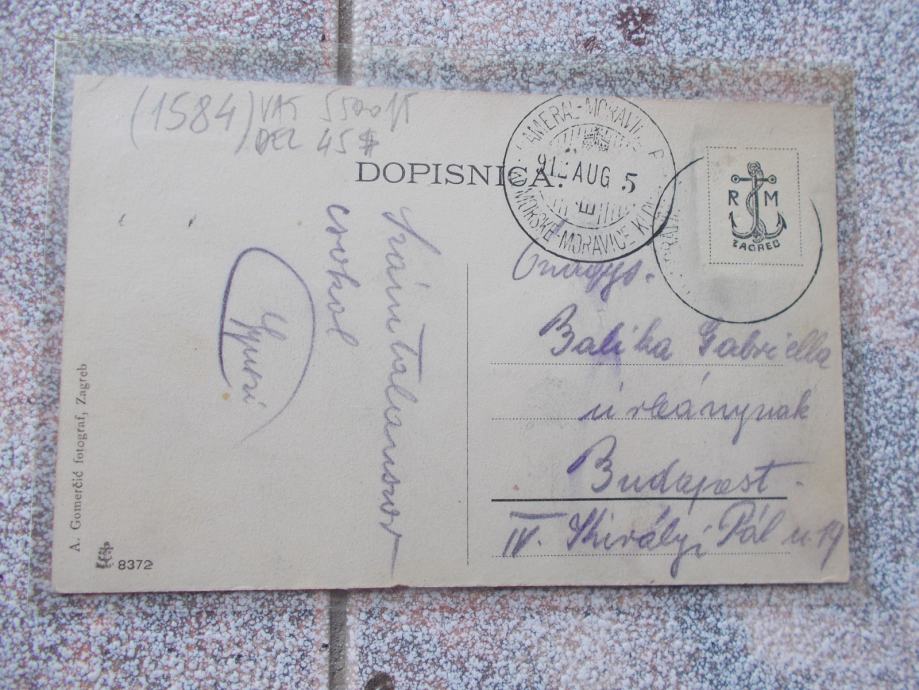 (1584) VAS 5500 ft
DEL 45 #
DOPISNICA.
KAMERAL-MORAVICA P.
912 AUG 5
E
KOMORSKE-MORAVICE KOL
R M
ZAGREB
Számtalanszor
csókol
Gyuri
Őnagys.
Balika Gabriella
úrleánynak
Budapest.
IV. Királyi Pál u 19
A. Gomerčić fotograf, Zagreb
8372